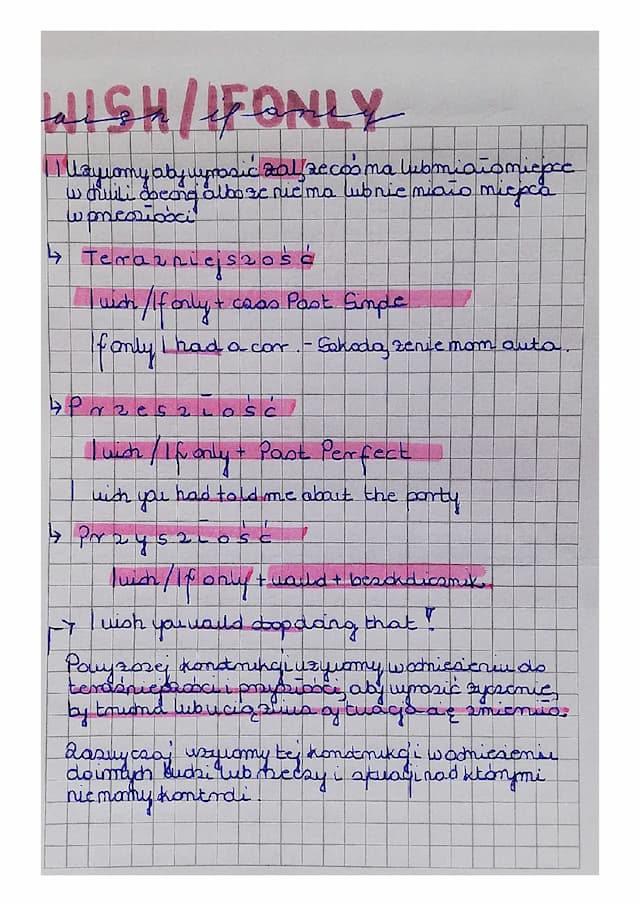 WISH/IFONLY
wish if only
Używamy aby wyrazić żal, że coś ma lub miało miejsce
w chwili obecnej albo że nie ma lub nie miało miejsca
w przeszłości
↳ Teraźniejszość
I wish /If only + czas Past Simple
If only I had a car. - Szkoda, że nie mam auta.
↳ Przeszłość
I wish / If only + Past Perfect
I wish you had told me about the party
↳ Przyszłość
I wish/If only + would + bezokolicznik
→ I wish you would stop doing that!
Powyższej konstrukcji używamy w odniesieniu do
teraźniejszości i przyszłości, aby wyrazić życzenie,
by trudna lub uciążliwa sytuacja się zmieniła.
Zazwyczaj używamy tej konstrukcji w odniesieniu
do innych ludzi lub rzeczy i sytuacji nad którymi
nie mamy kontroli.